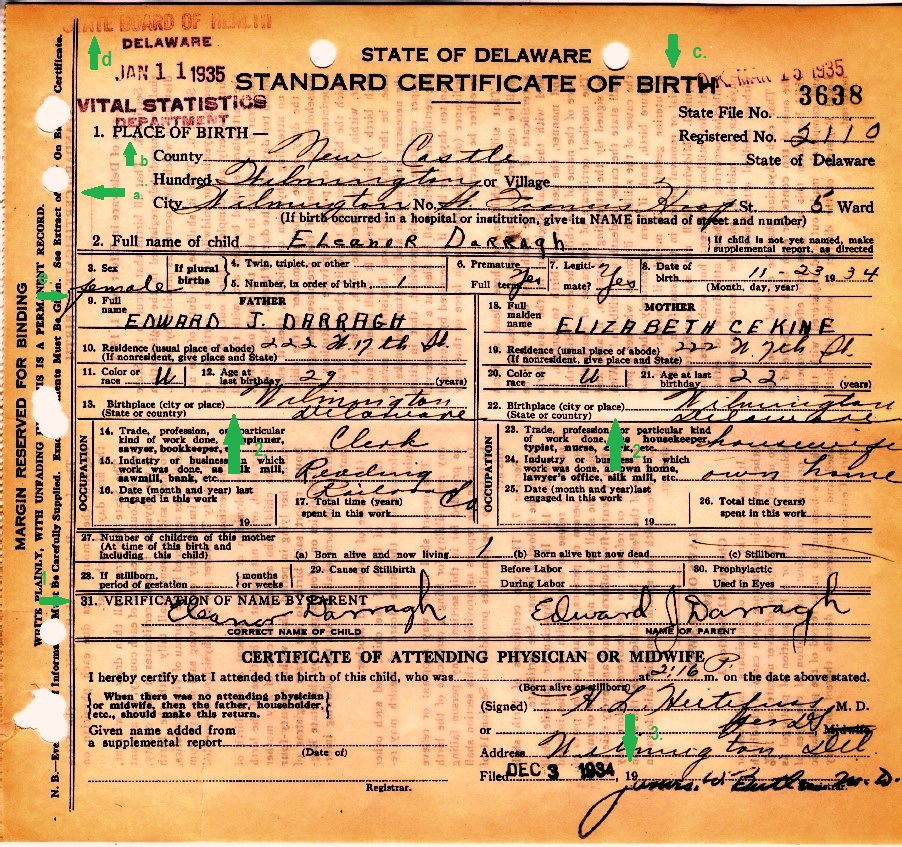 STATE BOARD OF HEALTH
DELAWARE
JAN 11 1935
VITAL STATISTICS
DEPARTMENT
d
c.
STATE OF DELAWARE
STANDARD CERTIFICATE OF BIRTH
O.K. MAR 15 1935
3638
State File No.
Registered No. 2110
1. PLACE OF BIRTH—
b
County New Castle State of Delaware
Hundred Wilmington or Village
a.
City Wilmington No. St. Francis Hosp St. 5 Ward
(If birth occurred in a hospital or institution, give its NAME instead of street and number)
2. Full name of child Eleanor Darragh {If child is not yet named, make supplemental report, as directed
3. Sex female
If plural births
4. Twin, triplet, or other
5. Number, in order of birth 1
6. Premature
Full term Yes
7. Legitimate? Yes
8. Date of birth 11-23 1934
(Month, day, year)
FATHER
9. Full name EDWARD J. DARRAGH
10. Residence (usual place of abode) 222 W 17th St.
(If nonresident, give place and State)
11. Color or race W 12. Age at last birthday 29 (years)
13. Birthplace (city or place) Wilmington
(State or country) Delaware
2
OCCUPATION
14. Trade, profession, or particular kind of work done, as spinner, sawyer, bookkeeper, Clerk
15. Industry or business in which work was done, as silk mill, sawmill, bank, etc. Reading Railroad Co
16. Date (month and year) last engaged in this work 19
17. Total time (years) spent in this work
MOTHER
18. Full maiden name ELIZABETH CEKINE
19. Residence (usual place of abode) 222 W 7th St.
(If nonresident, give place and State)
20. Color or race W 21. Age at last birthday 22 (years)
22. Birthplace (city or place) Wilmington
(State or country) Delaware
2
OCCUPATION
23. Trade, profession or particular kind of work done, as housekeeper, typist, nurse, clerk, etc. housewife
24. Industry or business in which work was done, as own home, lawyer's office, silk mill, etc. own home
25. Date (month and year) last engaged in this work 19
26. Total time (years) spent in this work
27. Number of children of this mother
(At time of this birth and including this child)
(a) Born alive and now living 1 (b) Born alive but now dead (c) Stillborn
28. If stillborn, period of gestation {months or weeks
29. Cause of Stillbirth
Before Labor
During Labor
30. Prophylactic Used in Eyes
31. VERIFICATION OF NAME BY PARENT
Eleanor Darragh Edward J Darragh
CORRECT NAME OF CHILD NAME OF PARENT
CERTIFICATE OF ATTENDING PHYSICIAN OR MIDWIFE
I hereby certify that I attended the birth of this child, who was at 2:16 P. m. on the date above stated.
(Born alive or stillborn)
{When there was no attending physician or midwife, then the father, householder, etc., should make this return.}
(Signed) M. D.
or Midwife
3.
Given name added from a supplemental report
(Date of)
Address Wilmington Del
Filed DEC 3 1934, 19
Registrar.
Registrar.
M. D.
MARGIN RESERVED FOR BINDING
WRITE PLAINLY, WITH UNFADING IS A PERMANENT RECORD.
N. B.—Eve of Informa Must Be Carefully Supplied. Exa ents Must Be Given. See Extract of On Ba Certificate.